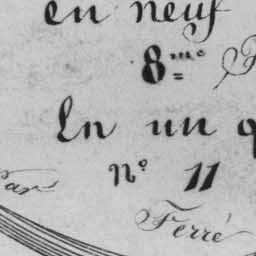 en neuf
8me
En un
N° 11
Par
Ferré